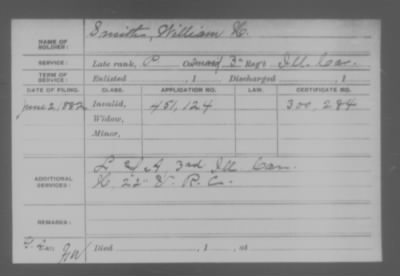 NAME OF SOLDIER: Smith, William H.
SERVICE: Late rank, P Co. 3" Reg't Ill. Cav.
TERM OF SERVICE: Enlisted , 1 Discharged , 1
DATE OF FILING. CLASS. APPLICATION NO. LAW. CERTIFICATE NO.
June 2, 1882 Invalid, 451,124 300,284
Widow,
Minor,
ADDITIONAL SERVICES: L & A, 3rd Ill Cav.
K, 22" V. R. C.
REMARKS:
Died , 1 , at